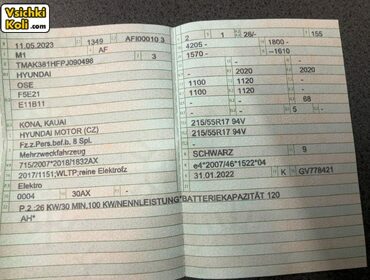 Vsichki
Koli.com
11.05.2023 1349 AFI00010 3
M1 AF
TMAK381HFPJ090498 3
HYUNDAI
OSE
F5E21
E11B11
KONA, KAUAI
HYUNDAI MOTOR (CZ)
Fz.z.Pers.bef.b. 8 Spl.
Mehrzweckfahrzeug
715/2007*2018/1832AX
2017/1151;WLTP;reine Elektrofz
Elektro
0004 30AX -
P.2.:26 KW/30 MIN,100 KW/NENNLEISTUNG*BATTERIEKAPAZITÄT 120
AH*
2 1 28/- 155
4205 - 1800 -
1570 - --1610
- - -
- 2020 2020
1100 1120 -
1100 1120 -
- - - 68
- - 5 -
215/55R17 94V
215/55R17 94V
-
SCHWARZ 9
e4*2007/46*1522*04
31.01.2022 K GV778421